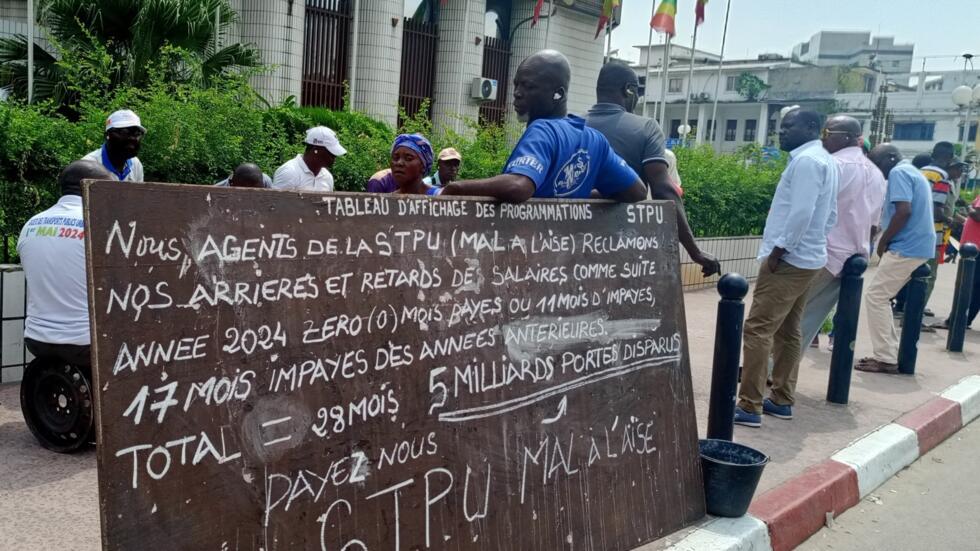 TABLEAU D'AFFICHAGE DES PROGRAMMATIONS STPU
NOUS, AGENTS DE LA STPU (MAL A L'AÏSE) RECLAMONS
NOS ARRIERES ET RETARDS DE SALAIRES COMME SUITE
ANNEE 2024 ZERO (0) MOIS PAYES OU 11 MOIS D'IMPAYES,
17 MOIS IMPAYES DES ANNEES ANTERIEURES.
TOTAL = 28 MOIS. 5 MILLIARDS PORTES DISPARUS
PAYEZ NOUS
STPU MAL À L'AÏSE
TRANSPORTS PUBLICS
1er MAI 2024